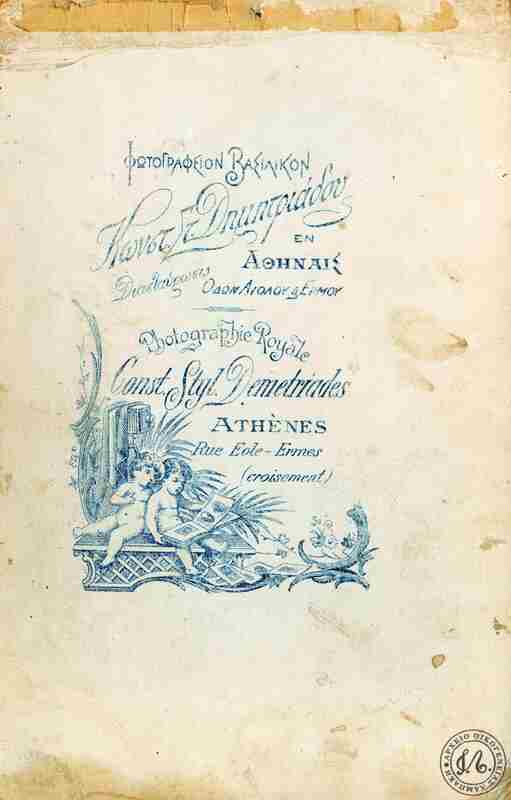 ΦΩΤΟΓΡΑΦΕΙΟΝ ΒΑΣΙΛΙΚΟΝ
Κωνστ. Στ. Δημητριάδου
ΕΝ
ΑΘΗΝΑΙΣ
Διασταύρωσις ΟΔΩΝ ΑΙΟΛΟΥ & ΕΡΜΟΥ
Photographie Royale
Const. Styl. Demetriades
ATHÈNES
Rue Eole - Ermes
(croisement)
ΑΡΧΕΙΟ ΟΙΚΟΓΕΝΕΙΑΣ